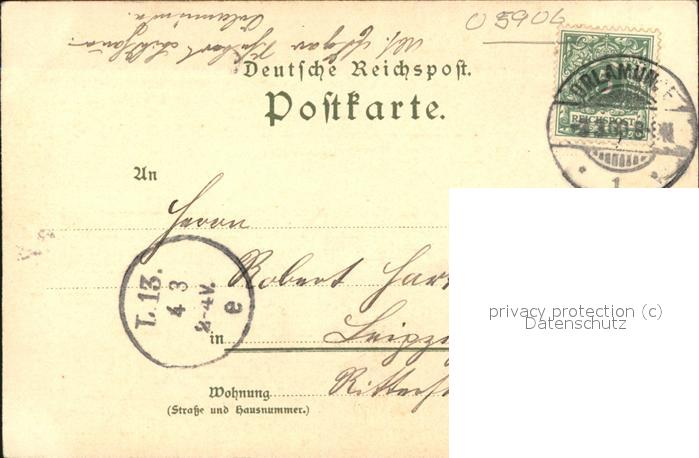 05906
Orlamünde.
Deutsche Reichspost.
Postkarte.
ORLAMÜNDE
REICHSPOST
1
An
Herrn
Robert Har
L.13.
4 3
2-4V.
e
in Leipz
Wohnung Ritterst
(Straße und Hausnummer.)
privacy protection (c)
Datenschutz